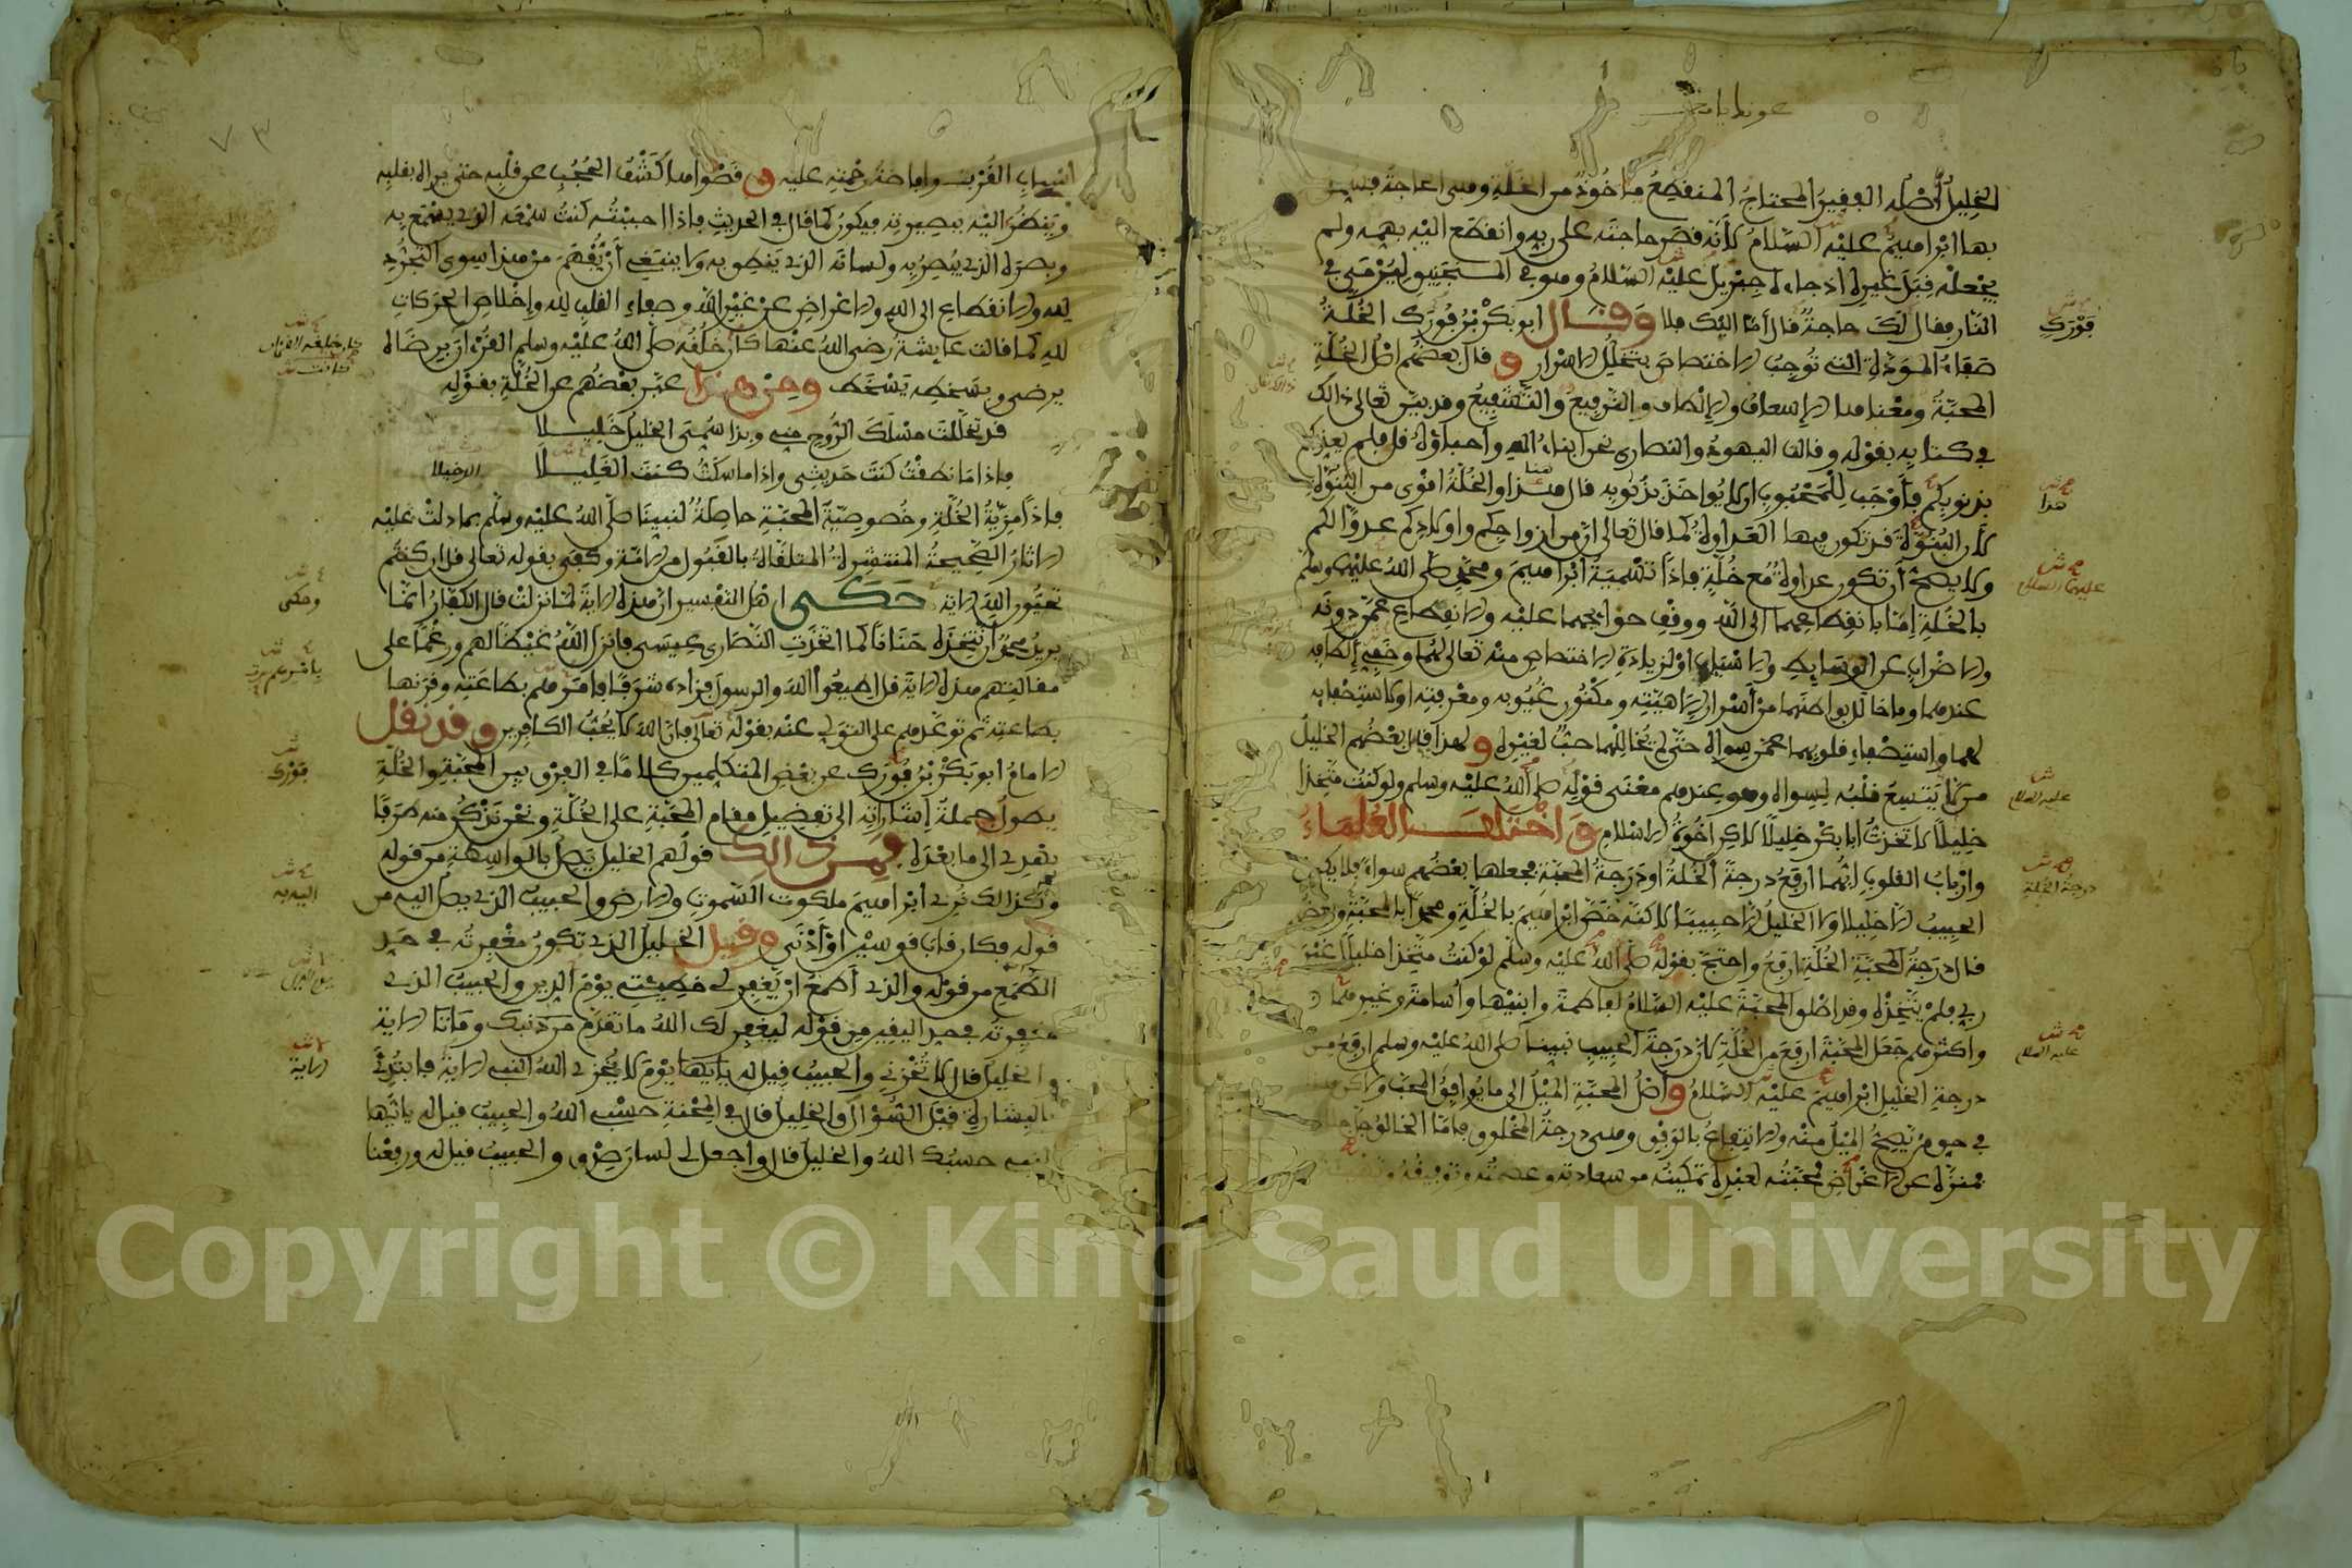 الخليل أصله الفقير المحتاج المنقطع مأخوذ من الخلة وهي الحاجة فسمي
بها ابراهيم عليه السلام لأنه قصر حاجته على ربه وانقطع اليه بهمه ولم
يجعله قبل غيره اذ جاءه جبريل عليه السلام وهو في المنجنيق ليرمى في
النار فقال ألك حاجة قال أما اليك فلا وقال ابو بكر بن فورك الخلة
صفاء المودة التي توجب الاختصاص بتخلل الاسرار وقال بعضهم اصل الخلة
المحبة ومعناها الإسعاف والإلطاف والترفيع والتشفيع وقد بين تعالى ذالك
في كتابه بقوله وقالت اليهود والنصارى نحن ابناء الله واحباؤه قل فلم يعذبكم
بذنوبكم فأوجب للمحبوب ان لا يواخذ بذنوبه قال هذا والخلة اقوى من البنوة
لأن البنوة قد تكون فيها العداوة كما قال تعالى ان من ازواجكم واولادكم عدوا لكم
ولا يصح أن تكون عداوة مع خلة فاذا تسمية ابراهيم ومحمد صلى الله عليهما وسلم
بالخلة إما بانقطاعهما الى الله ووقف حوايجهما عليه والانقطاع عمن دونه
والاضراب عن الوسايط والاسباب او لزيادة الاختصاص منه تعالى لهما وخفي إلطافه
عندهما وما خالل بواطنهما من أسرار إلاهيته ومكنون غيوبه ومعرفته او لاستصفايه
لهما واستصفاء قلوبهما عمن سواه حتى لم يخاللهما حب لغيره ولهذا قال بعضهم الخليل
من لا يتسع قلبه لسواه وهو عندهم معنى قوله صلى الله عليه وسلم ولو كنت متخذا
خليلا لاتخذت أبا بكر خليلا لاكن اخوة الاسلام واختلف العلماء
وارباب القلوب ايهما ارفع درجة الخلة او درجة المحبة فجعلها بعضهم سواء فلا يكون
الحبيب الا خليلا ولا الخليل الا حبيبا لاكنه خص ابراهيم بالخلة ومحمدا بالمحبة وبعضهم
قال درجة الخلة ارفع واحتج بقوله صلى الله عليه وسلم لو كنت متخذا خليلا غير
ربي فلم يتخذه وقد اطلق المحبة عليه السلام لفاطمة وابنيها وأسامة وغيرهم
واكثرهم جعل المحبة ارفع من الخلة لأن درجة الحبيب نبينا صلى الله عليه وسلم ارفع من
درجة الخليل ابراهيم عليه السلام واصل المحبة الميل الى ما يوافق المحب ولاكن هذا
في حق من يصح الميل منه والانتفاع بالوفق وهي درجة المخلوق فاما الخالق جل جلاله
فمنزه عن الاغراض فمحبته لعبده تمكينه من سعادته وعصمته وتوفيقه
فورك
هذا
عليهما السلام
عليه السلام
درجة الخلة
عليه السلام
اسباب القرب وافاضة رحمته عليه وقصواها كشف الحجب عن قلبه حتى يراه بقلبه
وينظر اليه ببصيرته فيكون كما قال في الحديث فاذا احببته كنت سمعه الذي يسمع به
وبصره الذي يبصر به ولسانه الذي ينطق به ولا ينبغي أن يفهم من هذا سوى التجرد
لله والانقطاع الى الله والاعراض عن غير الله وصفاء القلب لله وإخلاص الحركات
لله كما قالت عايشة رضي الله عنها كان خلقه صلى الله عليه وسلم القرءان برضاه
يرضى وبسخطه يسخط ومن هذا عبر بعضهم عن الخلة بقوله
قد تخللت مسلك الروح مني وبذا سمي الخليل خليلا
فاذا ما نطقت كنت حديثي واذا ما سكت كنت الغليلا
فاذا مزية الخلة وخصوصية المحبة حاصلة لنبينا صلى الله عليه وسلم بما دلت عليه
الاثار الصحيحة المنتشرة المتلقاة بالقبول من الامة وكفى بقوله تعالى قل ان كنتم
تحبون الله الاية حكى اهل التفسير ان هذه الاية لما نزلت قال الكفار انما
يريد محمد أن نتخذه حنانا كما اتخذت النصارى عيسى فانزل الله غيظا لهم ورغما على
مقالتهم هذه الاية قل اطيعوا الله والرسول فزاده شرفا بامرهم بطاعته وقرنها
بطاعته ثم توعدهم على التولي عنه بقوله تعالى فإن الله لا يحب الكافرين وقد نقل
الامام ابو بكر بن فورك عن بعض المتكلمين كلاما في الفرق بين المحبة والخلة
يطول جملة إشاراته الى تفضيل مقام المحبة على الخلة ونحن نذكر منه طرفا
يهدي الى ما بعده فمن ذالك قولهم الخليل يصل بالواسطة من قوله
وكذالك نري ابراهيم ملكوت السموت والارض والحبيب الذي يصل اليه من
قوله فكان قاب قوسين او أدنى وقيل الخليل الذي تكون مغفرته في حد
الطمع من قوله والذي أطمع ان يغفر لي خطيئتي يوم الدين والحبيب الذي
مغفرته في حد اليقين من قوله ليغفر لك الله ما تقدم من ذنبك وما تا الاية
والخليل قال لا تخزني والحبيب قيل له يوم لا يخزي الله النبي الاية فابتدئ
بالبشارة قبل السؤال والخليل قال في المحنة حسبي الله والحبيب قيل له يا أيها
النبي حسبك الله والخليل قال واجعل لي لسان صدق والحبيب قيل له ورفعنا
وحكى
فورك
اليه به
الاية
٧٣
Copyright © King Saud University